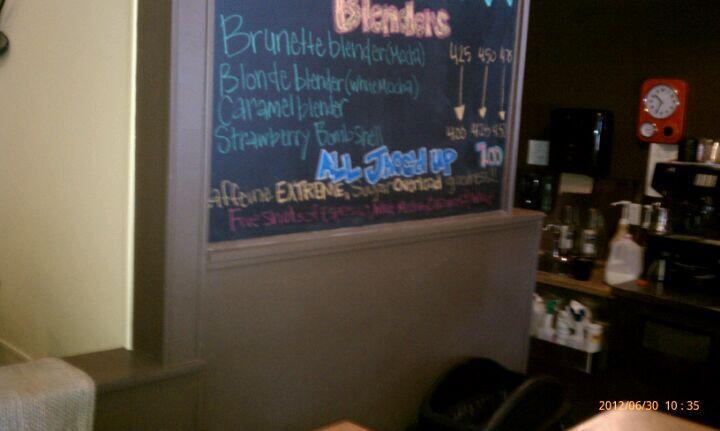 Blenders
Brunette blender (Mocha) 4.25 4.50 4.75
Blonde blender (White Mocha)
Caramel blender
Strawberry Bombshell 4.00 4.25 4.50
ALL JAGG'D UP 7.00
caffeine EXTREME, Sugar Overload goodness!!!
Five shots of Espresso, White
2012/06/30 10:35